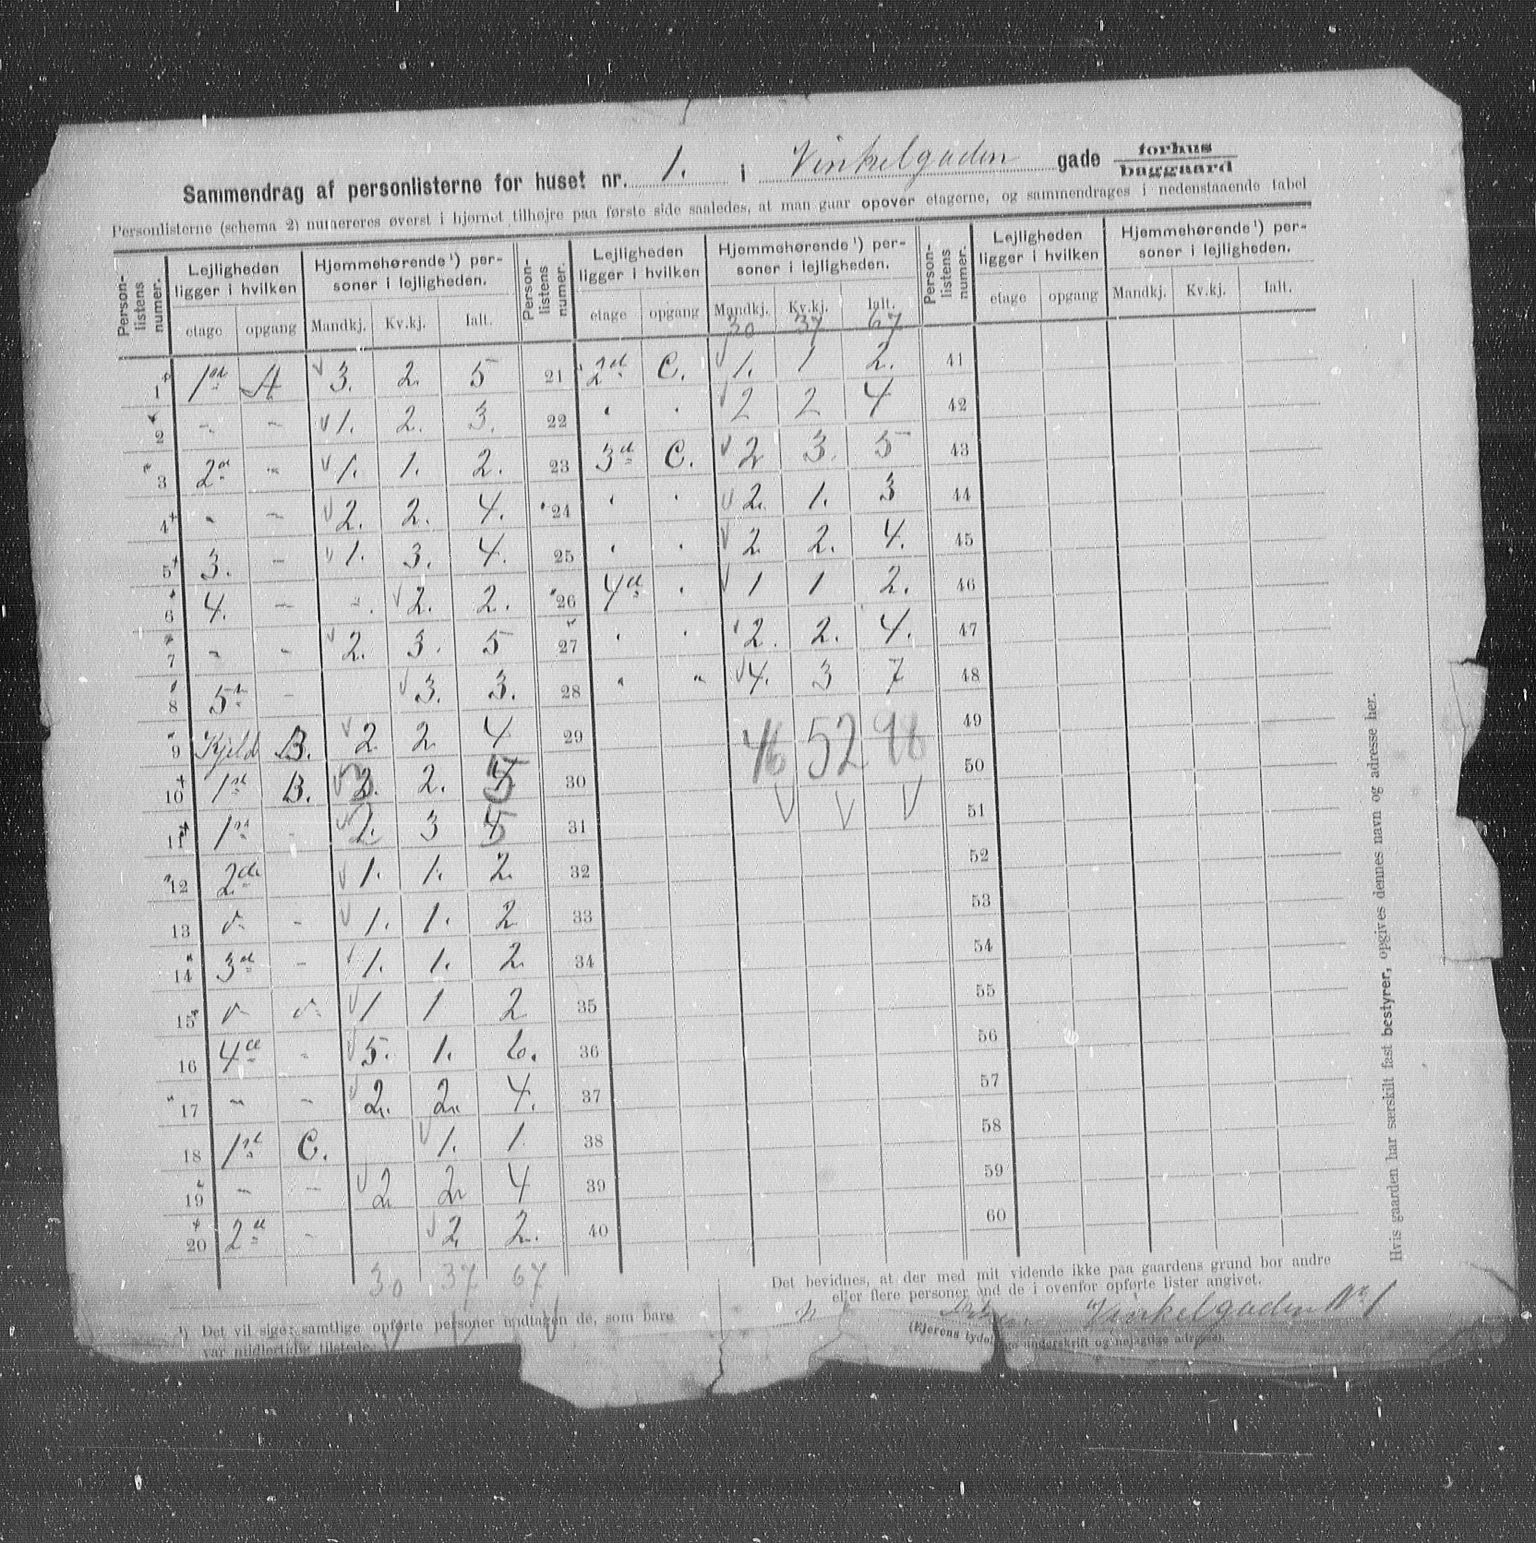 Sammendrag af personlisterne for huset nr. 1. i Vinkelgaden gade forhus baggaard
Personlisterne (schema 2) numereres øverst i hjørnet tilhøjre paa første side saaledes, at man gaar opover etagerne, og sammendrages i nedenstaaende tabel
Person-listens numer. Lejligheden ligger i hvilken Hjemmehørende¹) per-soner i lejligheden.
etage opgang Mandkj. Kv.kj. Ialt.
1 1ste A 3. 2. 5
2 - - 1. 2. 3.
3 2den - 1. 1. 2.
4 - - 2. 2. 4.
5 3. - 1. 3. 4.
6 4. - - 2. 2.
7 - - 2. 3. 5
8 5te - 3. 3.
9 Kjeld. B. 2 2 4
10 1ste B. 3. 2. 5
11 1ste - 2. 3 5
12 2de 1. 1. 2.
13 - - 1. 1. 2
14 3die - 1. 1. 2
15 - - 1 1 2
16 4de - 5. 1. 6.
17 - - 2. 2. 4.
18 1ste C. 1. 1
19 - - 2 2 4
20 2de - 2. 2.
30 37 67
Person-listens numer. Lejligheden ligger i hvilken Hjemmehørende¹) per-soner i lejligheden.
etage opgang Mandkj. Kv.kj. Ialt.
30 37 67
21 2den C. 1. 1 2.
22 " " 2 2 4
23 3die C. 2 3. 5
24 " " 2. 1. 3
25 " " 2 2. 4.
26 4de " 1 1 2.
27 " " 2. 2. 4.
28 " " 4. 3 7
29
46 52 98
30
31
32
33
34
35
36
37
38
39
40
Person-listens numer. Lejligheden ligger i hvilken Hjemmehørende¹) per-soner i lejligheden.
etage opgang Mandkj. Kv.kj. Ialt.
41
42
43
44
45
46
47
48
49
50
51
52
53
54
55
56
57
58
59
60
¹) Det vil sige: samtlige opførte personer undtagen de, som bare
var midlertidig tilstede.
Det bevidnes, at der med mit vidende ikke paa gaardens grund bor andre
eller flere personer end de i ovenfor opførte lister angivet.
Vinkelgaden No 1
(Ejerens tydelige underskrift og nøjagtige adresse).
Hvis gaarden har særskilt fast bestyrer, opgives dennes navn og adresse her.